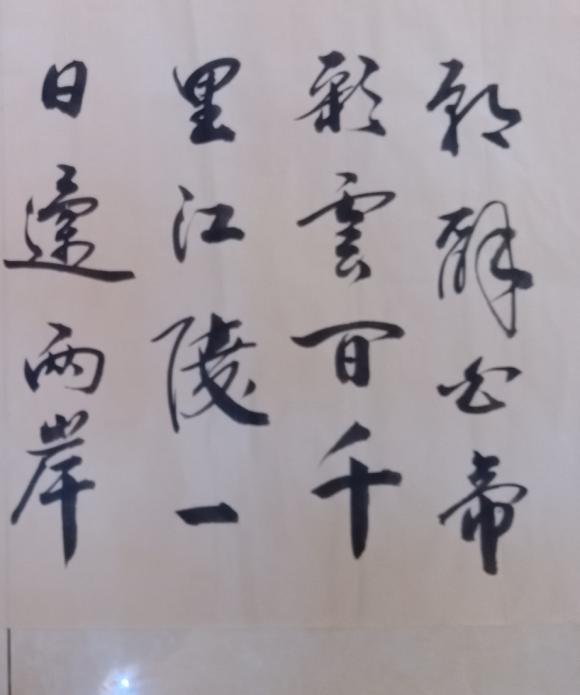 朝辭白帝
彩雲間千
里江陵一
日還兩岸